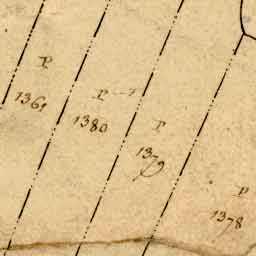 P
1361
P
1380
P
1379
P
1378